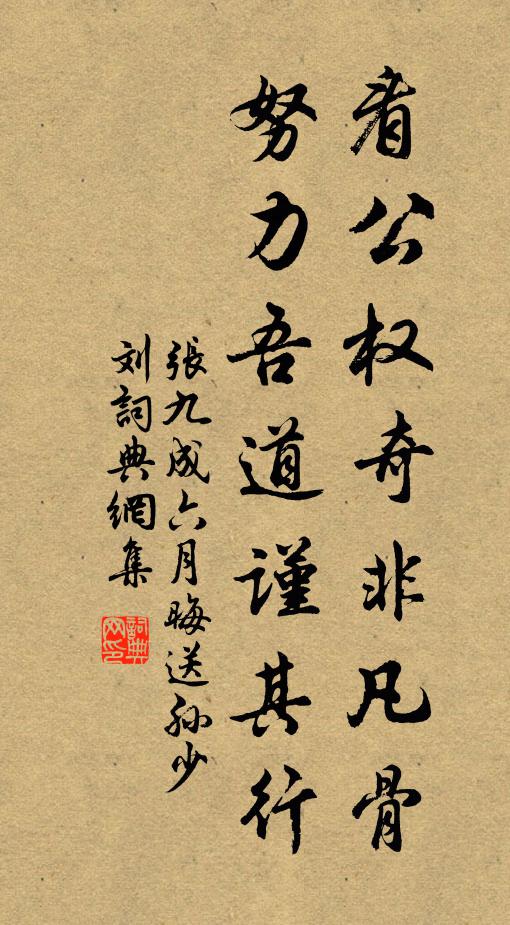 看公权奇非凡骨
努力吾道谨其行
張九成六月晦送孙少
刘詞典網集
詞典
网印